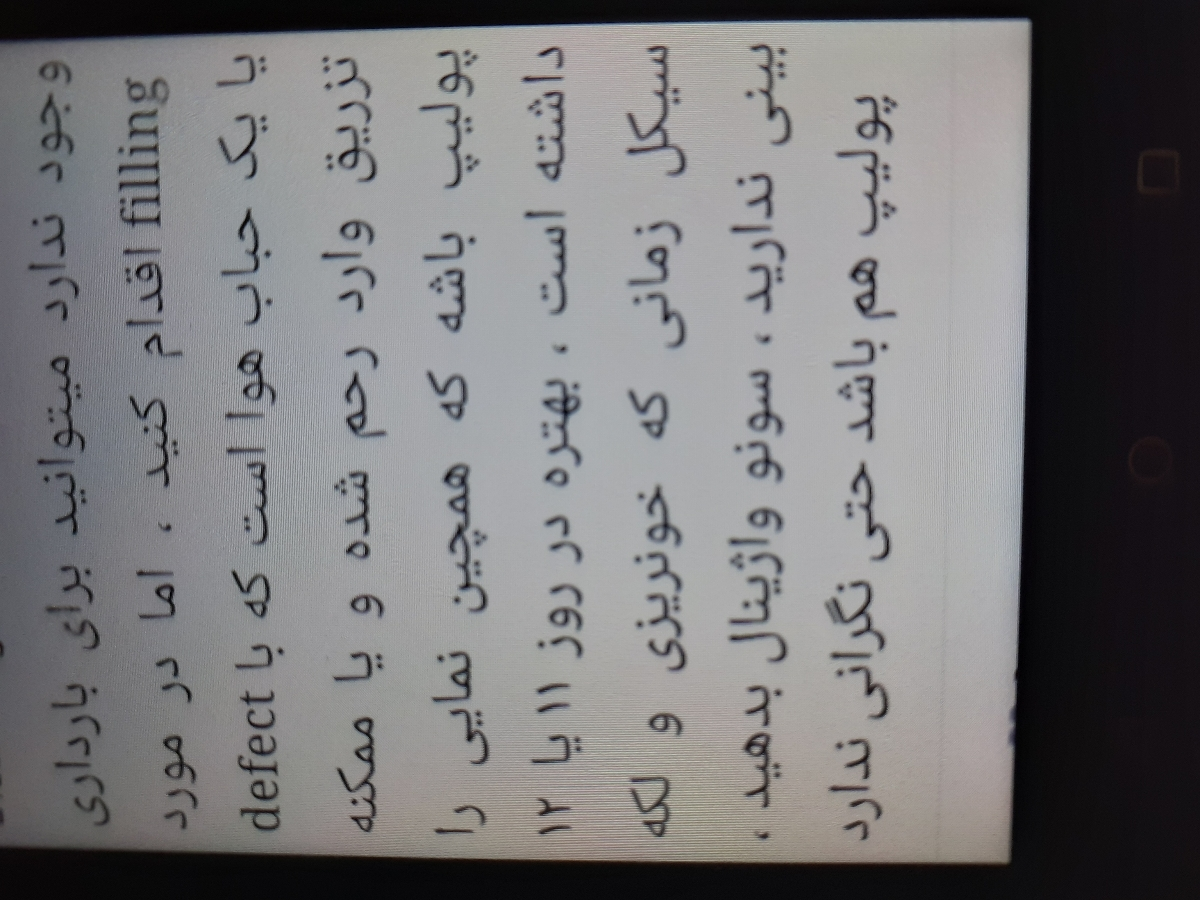 وجود ندارد میتوانید برای بارداری
اقدام کنید ، اما در مورد filling
defect یا یک حباب هوا است که با
تزریق وارد رحم شده و یا ممکنه
پولیپ باشه که همچین نمایی را
داشته است ، بهتره در روز ۱۱ یا ۱۲
سیکل زمانی که خونریزی و لکه
بینی ندارید ، سونو واژینال بدهید ،
پولیپ هم باشد حتی نگرانی ندارد